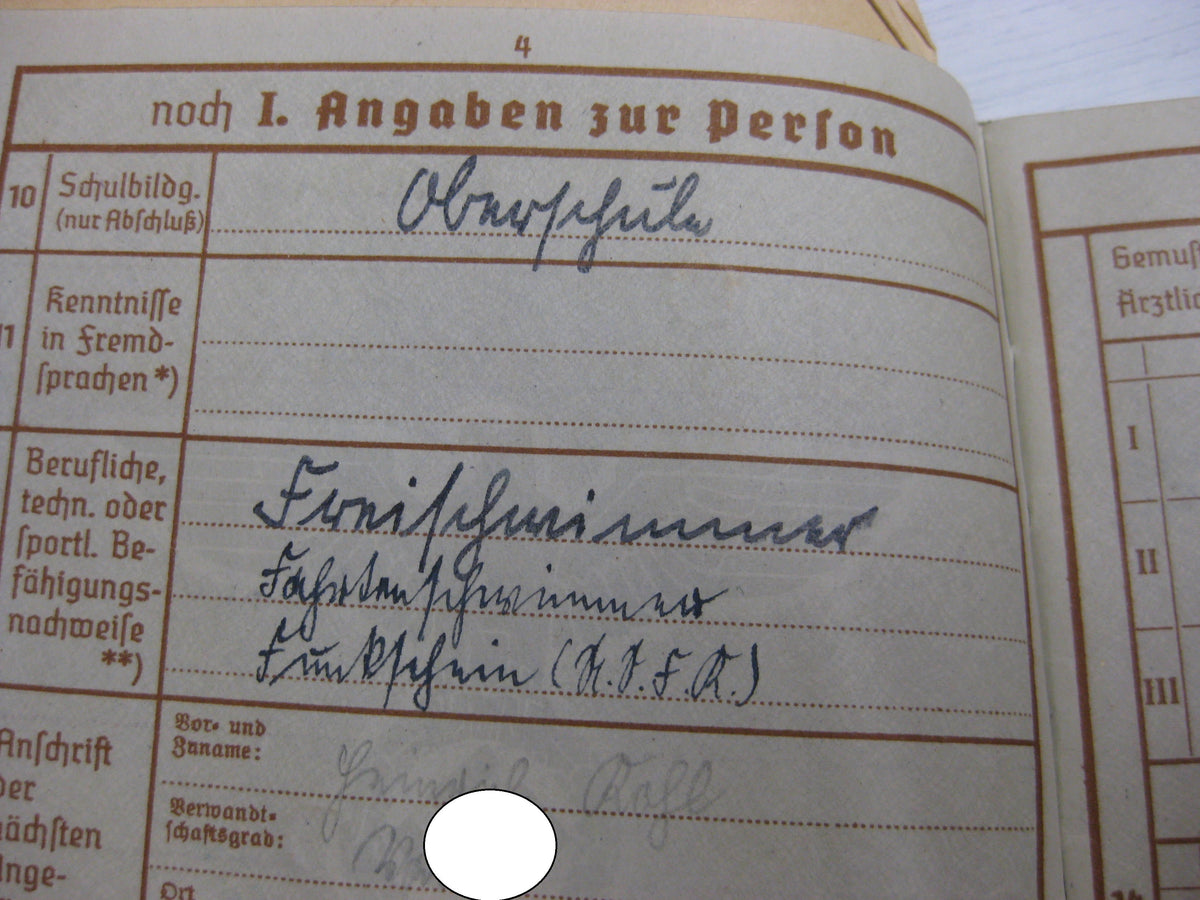 4
noch I. Angaben zur Person
10 Schulbildg.
(nur Abschluß)
Oberschule
11 Kenntnisse
in Fremd-
sprachen *)
Berufliche,
techn. oder
sportl. Be-
fähigungs-
nachweise
**)
Freischwimmer
Fahrtenschwimmer
Funkschein (N.S.F.K.)
Anschrift
der
nächsten
Ange-
Vor- und
Zuname:
Heinrich Kohl
Verwandt-
schaftsgrad:
Ort
Gemuſt
Ärztlic
I
II
III